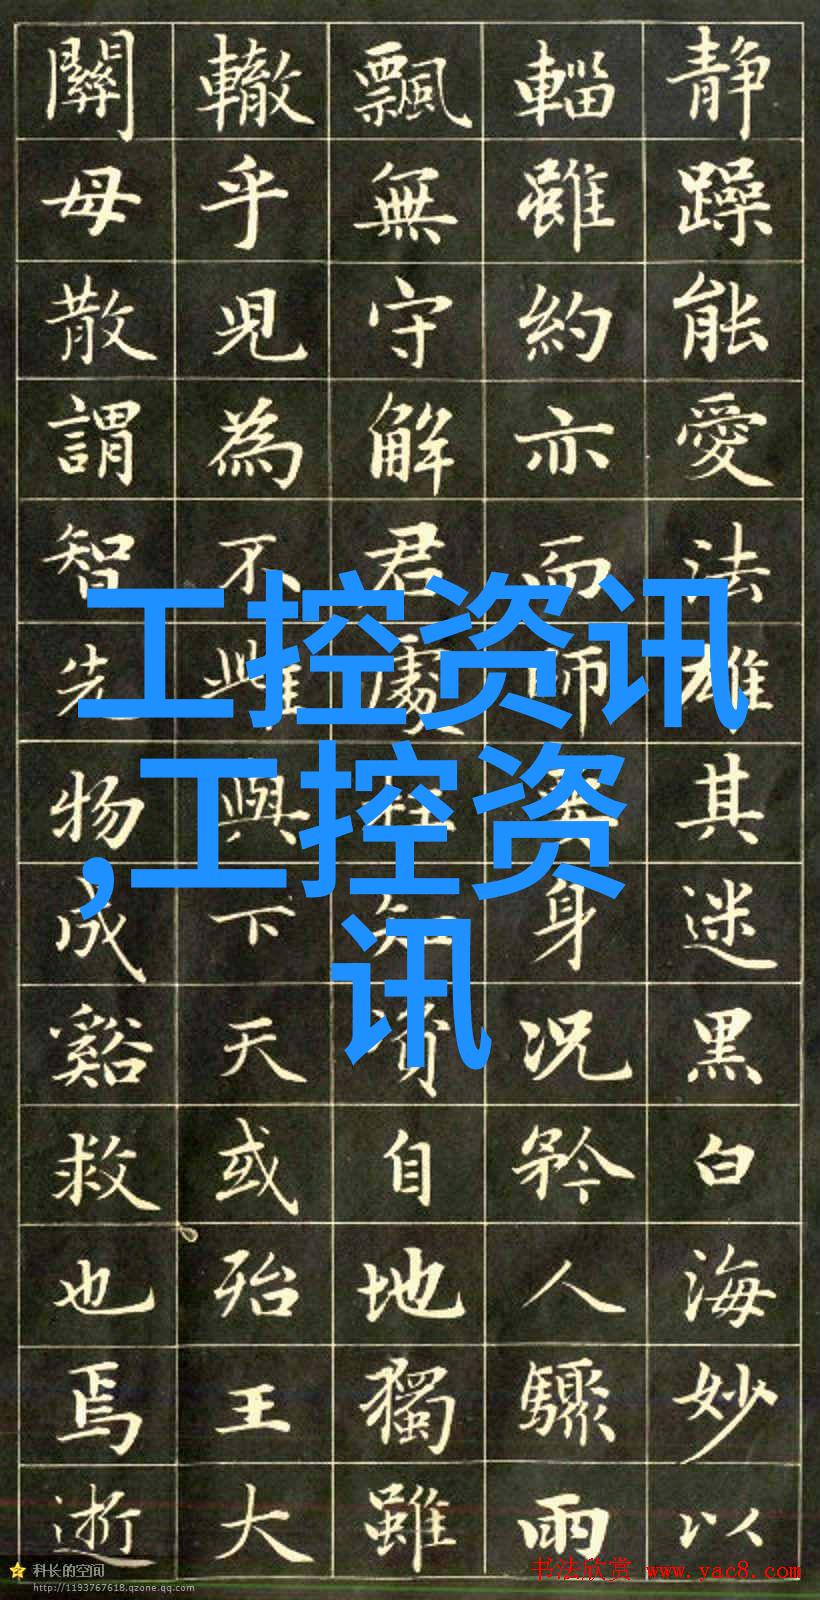 静躁能愛法雄其迷黑白海妙以
輜雖約亦而師身况矜人驟雨
飄無守解君處知自地獨雖
轍乎児為不雌與下天或殆王大
關母散謂智先物成谿救也焉逝
工控资讯
,工控资
讯
科长的空间
http://1193767618.qzone.qq.com
书法欣赏 www.yac8.com